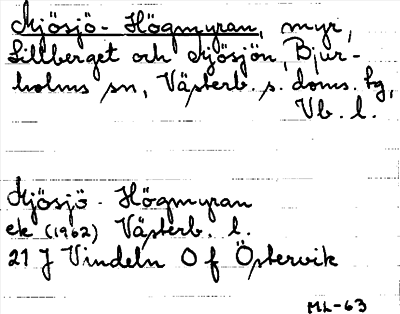 Mjösjö-Högmyran, myr,
Lillberget och Mjösjön, Bjur-
holms sn, Västerb. s. doms. hg,
Vb. l.
Mjösjö-Högmyran
ek (1962) Västerb. l.
21 J Vindeln 0 f Östervik
ML-63